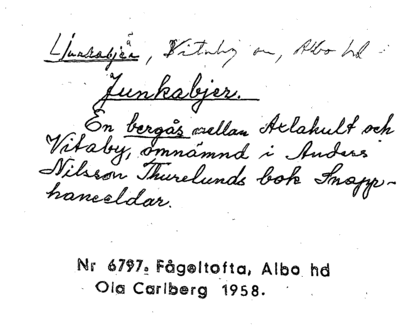 Junkabjär, Vitaby sn, Albo hd
Junkabjer.
En bergås mellan Axlakult och
Vitaby, omnämnd i Anders
Nilsson Thurelunds bok Snapp-
haneeldar.
Nr 6797. Fågeltofta, Albo hd
Ola Carlberg 1958.